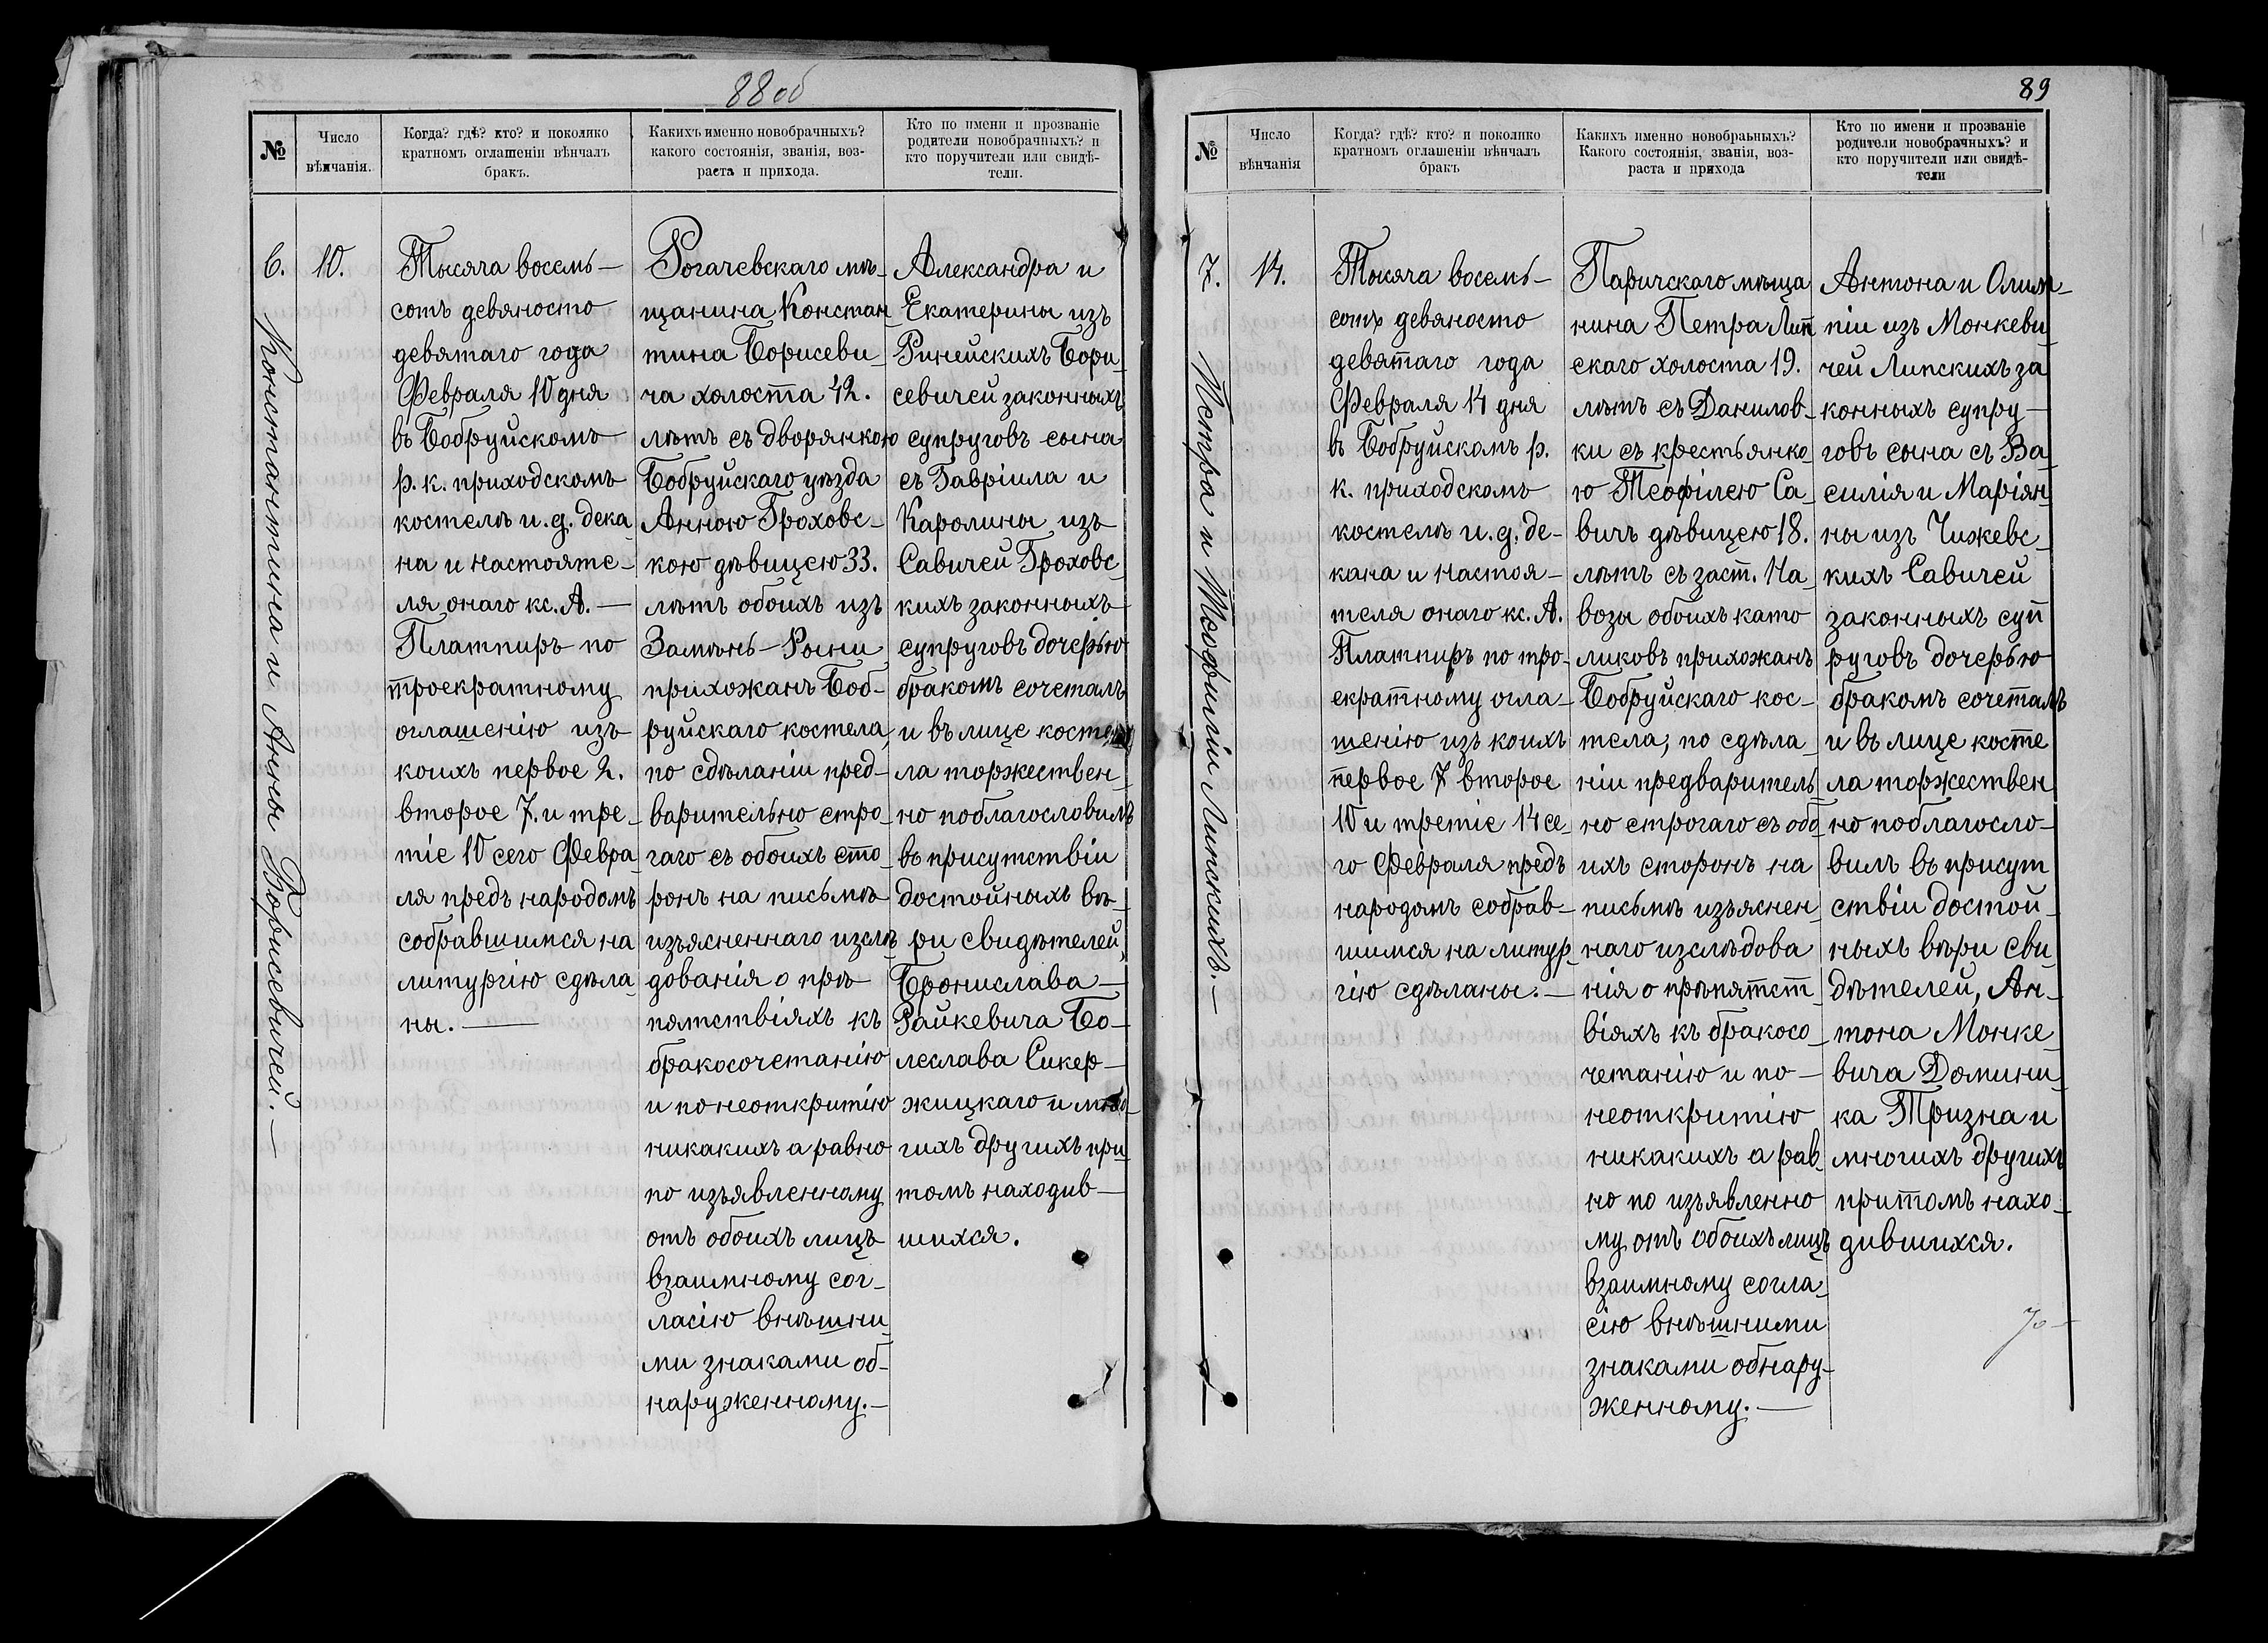 88 об
№
Число
вѣнчанія.
Когда? гдѣ? кто? и поколико
кратномъ оглашеніи вѣнчалъ
бракъ.
Какихъ именно новобрачныхъ?
какого состоянія, званія, воз-
раста и прихода.
Кто по имени и прозваніе
родители новобрачныхъ? и
кто поручители или свидѣ-
тели.
6.
Константина и Анны Борисевичей.—
10.
Тысяча восемь—
сотъ девяносто
девятаго года
Февраля 10 дня
въ Бобруйскомъ
р. к. приходскомъ
костелѣ и. д. дека
на и настояте-
ля онаго кс. А.—
Платпиръ по
троекратному
оглашенію изъ
коихъ первое 2.
второе 7. и тре-
тіе 10 сего Февра
ля предъ народомъ
собравшимся на
литургію сдѣла-
ны.—
Рогачевскаго мѣ-
щанина Констан-
тина Борисеви-
ча холоста 42.
лѣтъ съ дворянкою
Бобруйскаго уѣзда
Анною Гроховс-
кою дѣвицею 33.
лѣтъ обоихъ изъ
Замѣнь-Рыни
прихожанъ Боб-
руйскаго костела,
по сдѣланіи пред-
варительно стро-
гаго съ обоихъ сто-
ронъ на письмѣ
изъясненнаго изслѣ
дованія о прѣ-
пятствіяхъ къ
бракосочетанію
и по неоткритію
никакихъ а равно
по изъявленному
отъ обоихъ лицъ
взаимному сог-
ласію внѣшни-
ми знаками об-
наруженному.—
Александра и
Екатерины изъ
Ринейскихъ Бори-
севичей законныхъ
супруговъ сына
съ Гавріила и
Каролины изъ
Савичей Гроховс-
кихъ законныхъ
супруговъ дочерью
бракомъ сочеталъ
и въ лице косте
ла торжествен-
но поблагословилъ
въ присутствіи
достойныхъ вѣ-
ри свидѣтелей,
Бронислава—
Райкевича Бо-
леслава Сикер-
жицкаго и мно-
гихъ другихъ при
томъ находив-
шихся.
89
№
Число
вѣнчанія
Когда? гдѣ? кто? и поколико
кратномъ оглашеніи вѣнчалъ
бракъ
Какихъ именно новобраьныхъ?
Какого состоянія, званія, воз-
раста и прихода
Кто по имени и прозваніе
родители новобрачныхъ? и
кто поручители или свидѣ-
тели
7.
Петра и Теофиліи Липскихъ.—
14.
Тысяча восемь-
сотъ девяносто
девятаго года
Февраля 14 дня
въ Бобруйскомъ р.
к. приходскомъ
костелѣ и. д. де-
кана и настоя-
теля онаго кс. А.
Платпиръ по тро-
екратному огла-
шенію изъ коихъ
первое 7 второе
10 и третіе 14 се-
го Февраля предъ
народомъ собрав-
шимся на литур-
гію сдѣланы.—
Паричскаго мѣща
нина Петра Лип
скаго холоста 19.
лѣтъ съ Данилов-
ки съ крестьянко-
ю Теофілею Са-
вичъ дѣвицею 18.
лѣтъ съ заст. На
возы обоихъ като
ликовъ прихожанъ
Бобруйскаго кос-
тела, по сдѣла-
ніи предваритель
но строгаго съ обо
ихъ сторонъ на
письмѣ изъяснен-
наго изслѣдова
нія о прѣпятст
віяхъ къ бракосо
четанію и по-
неоткритію
никакихъ а рав-
но по изъявленно
му отъ обоихъ лицъ
взаимному согла-
сію внѣшними
знаками обнару-
женному.—
Антона и Олим-
піи изъ Монкеви
чей Липскихъ за
конныхъ супру-
говъ сына съ Ва
силія и Маріян
ны изъ Чижевс-
кихъ Савичей
законныхъ суп
руговъ дочерью
бракомъ сочеталъ
и въ лице косте
ла торжествен
но поблагосло-
вилъ въ присут
ствіи достой-
ныхъ вѣри сви-
дѣтелей, Ан-
тона Монке-
вича Домини-
ка Тризна и
многихъ другихъ
притомъ нахо-
дившихся.